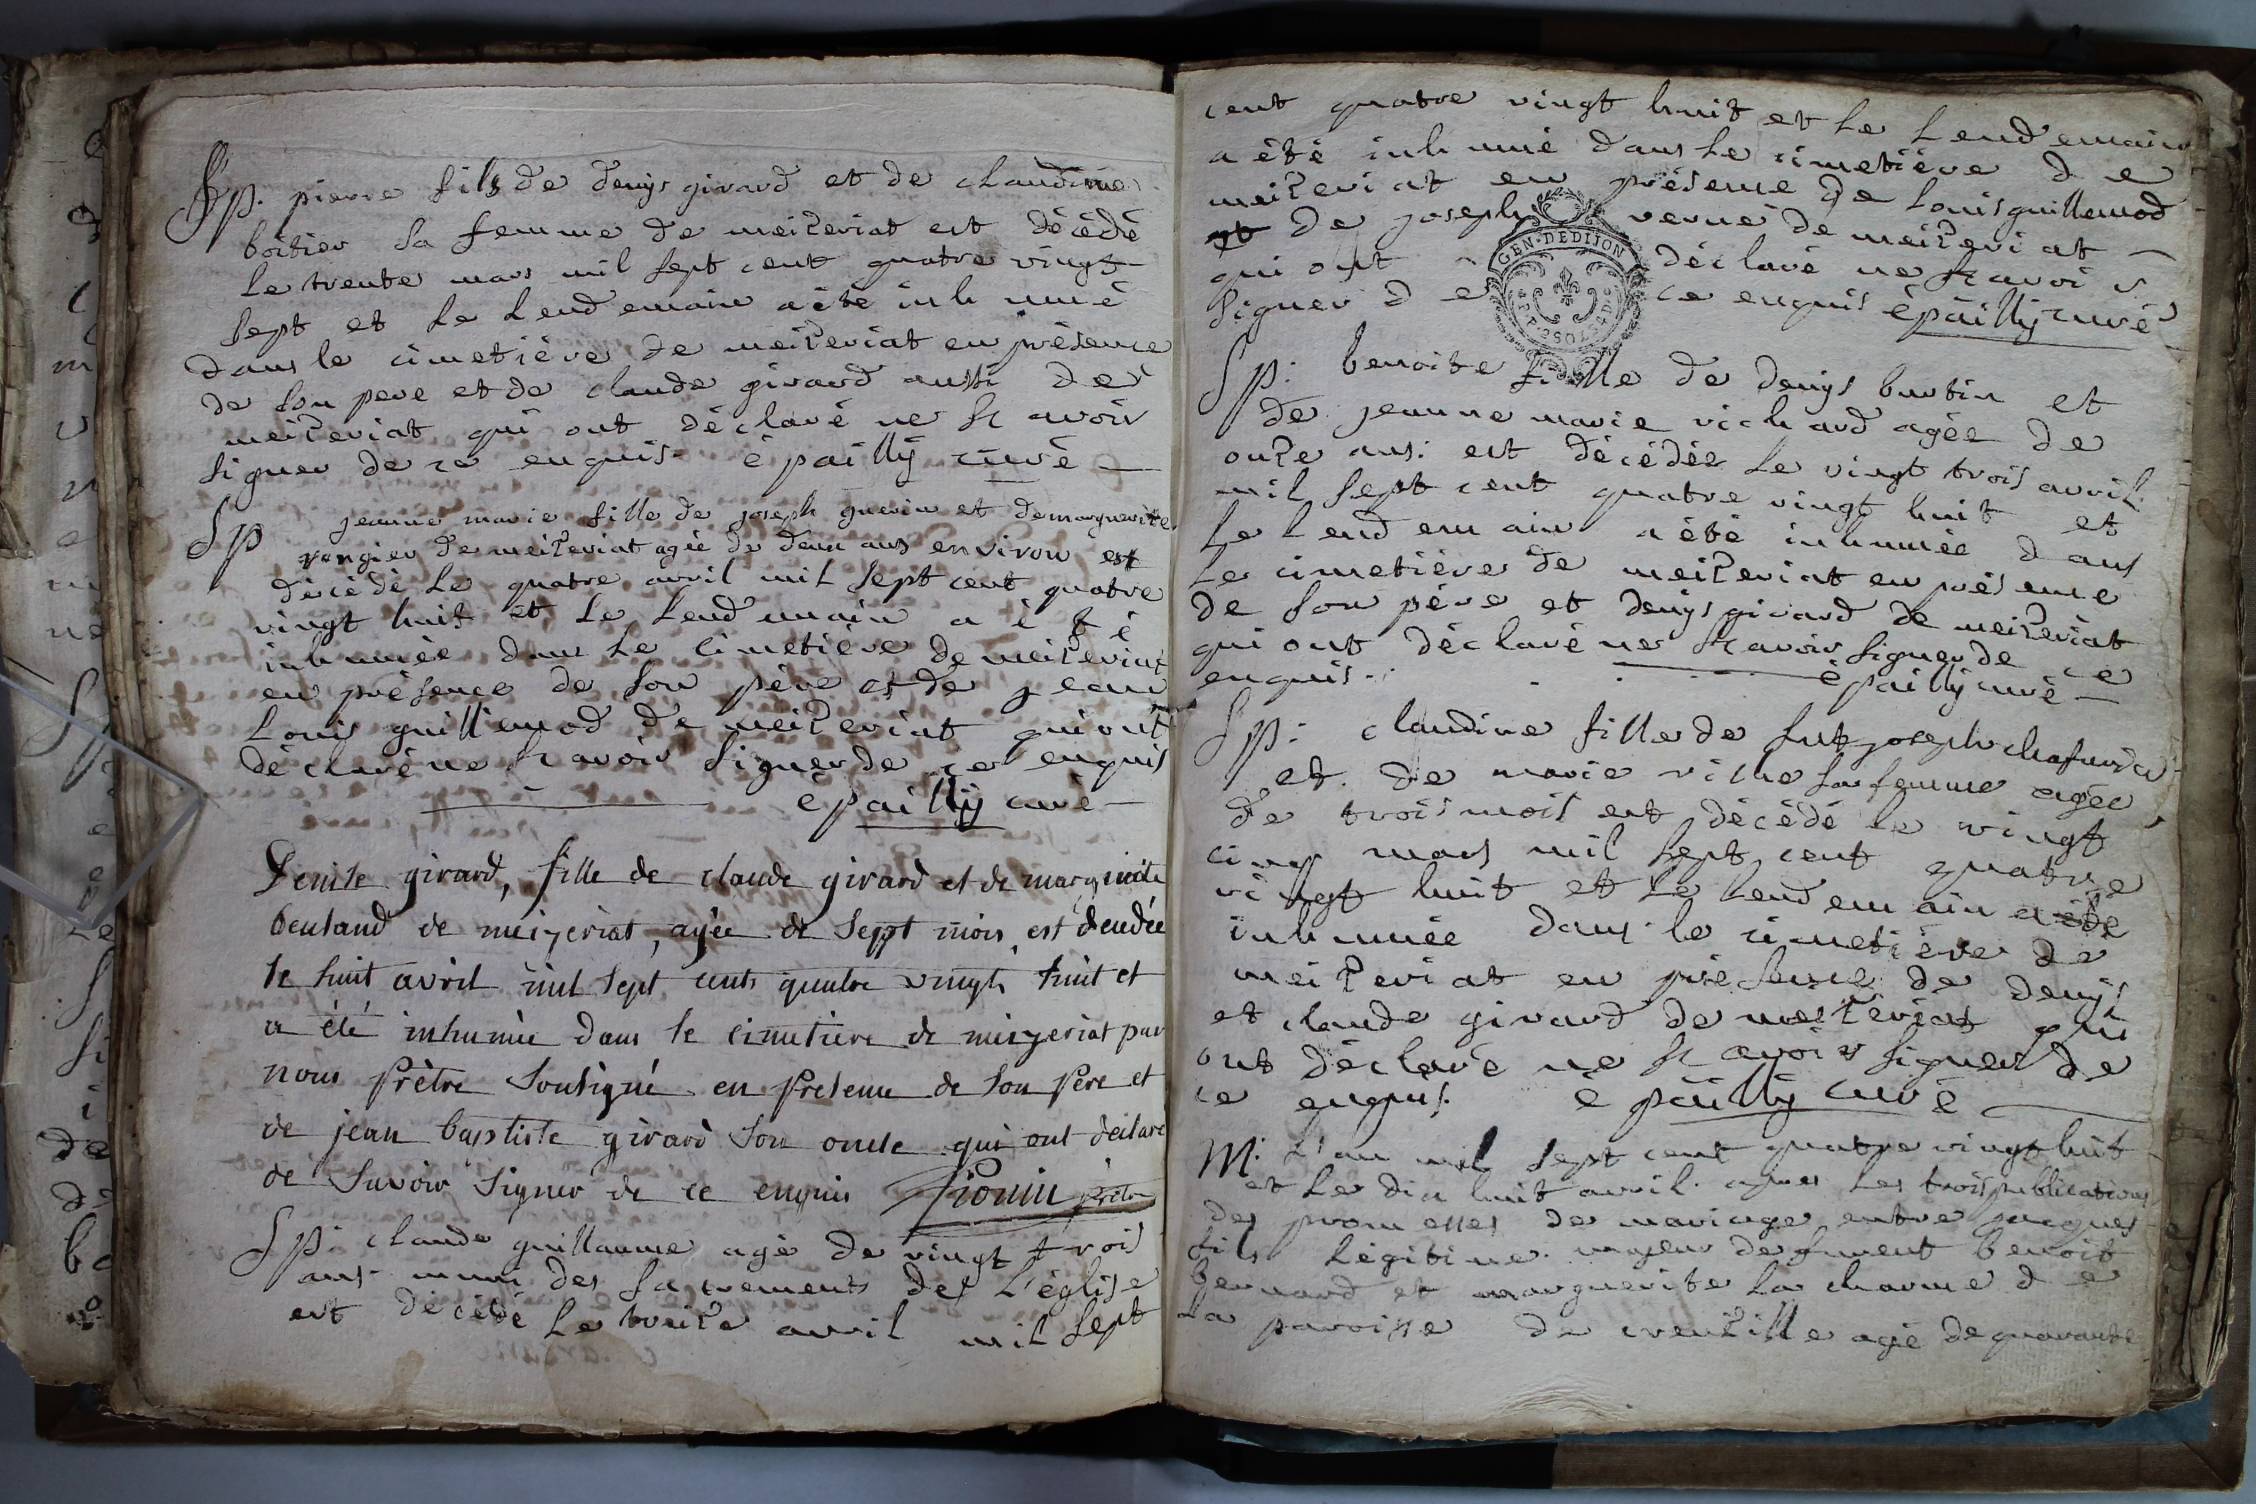 Sp. pierre fils de denys girard et de claudine
boitier sa femme de meizeriat est décédé
le trente mars mil sept cent quatre vingt
sept et le lendemain a été inhumé
dans le cimetière de meizeriat en présence
de son pere et de claude girard aussi de
meizeriat qui ont déclaré ne scavoir
signer de ce enquis. épailly curé
Sp jeanne marie fille de joseph guerin et de marguerite
de meizeriat agée de deux ans environ est
décédé le quatre avril mil sept cent quatre
vingt huit et le lendemain a été
inhumée dans le cimetière de meizeriat
en présence de son père et de jean
Louis guillemod de meizeriat qui ont
déclaré ne scavoir signer de ce enquis
épailly curé
Denise girard, fille de claude girard et de marguerite
beuland de meizeriat, agée de sept mois, est décedée
le huit avril mil sept cents quatre vingts huit et
a été inhumée dans le cimetiere de meizeriat par
nous Prètre soussigné en presence de son Pere et
de jean baptiste girard son oncle qui ont declaré
de savoir signer de ce enquis prètre
Sp: claude guillaume agé de vingt trois
ans muni des sacrements de L'église
est décédé le treize avril mil sept
cent quatre vingt huit et le lendemain
a été inhumé dans le cimetière de
meizeriat en présence de Louis guillemod
et de joseph verne de meizeriat
qui ont déclaré ne scavoir
signer de ce enquis épailly curé
GEN·DEDIJON
Sp: benoite fille de denys burtin et
de jeanne marie richard agée de
onze ans: est décédée le vingt trois avril
mil sept cent quatre vingt huit et
le lendemain a été inhumée dans
le cimetière de meizeriat en présence
de son père et denys girard de meizeriat
qui ont déclaré ne scavoir signer de ce
enquis. épailly curé
Sp: claudine fille de fut joseph
et de marie sa femme agée
de trois mois est décédé le vingt
cinq mars mil sept cent quatre
vingt huit et le lendemain a été
inhumée dans le cimetière de
meizeriat en présence de denys
et claude girard de meizeriat qui
ont déclaré ne scavoir signer de
ce enquis. épailly curé
M: L'an mil sept cent quatre vingt huit
et le dix huit avril apres les trois publications
des promesses de mariage entre jacques
fils légitime majeur de furent benoit
bernard et marguerite la charme de
la paroisse de agé de quarante